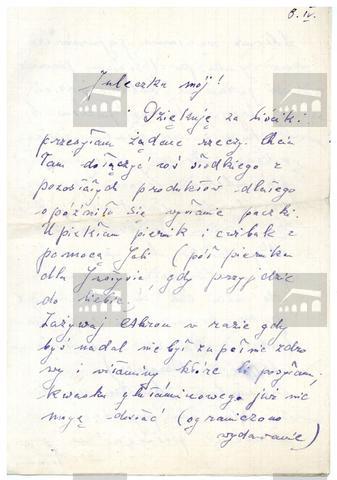 8.IV.
Juleczku mój!
Dziękuję za liścik i
przesyłam żądane rzeczy. Chcia
łam dołączyć coś słodkiego z
pozostałych produktów dlatego
opóźniło się wysłanie paczki.
Upiekłam piernik i cwibak z
pomocą Joli (pół piernika
dla , gdy przyjdzie
do Ciebie.
Zażywaj w razie gdy
byś nadal nie był zupełnie zdro
wy i vitaminy które Ci posyłam,
kwasku glutaminowego już nie
mogę dostać (ograniczono
wydawanie)